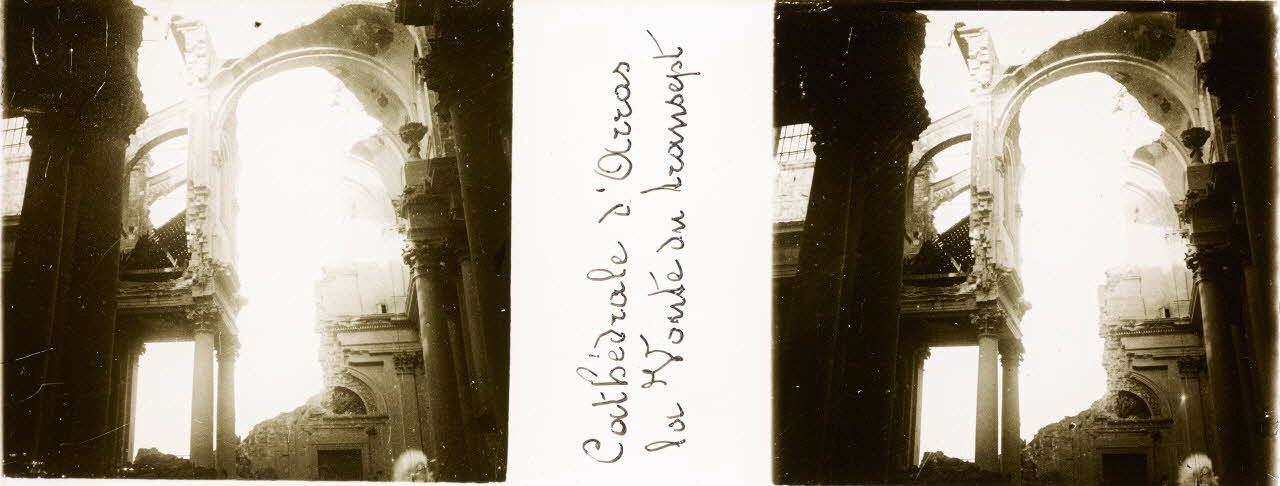 Cathédrale d'Arras
la Voute du transept